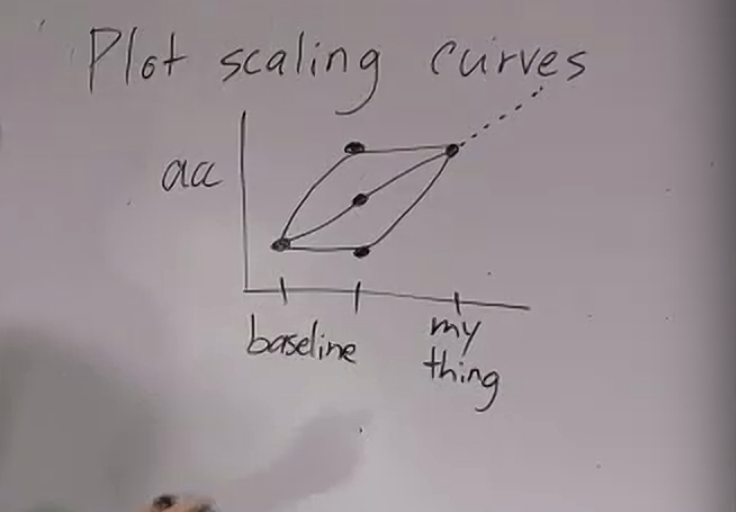 Plot scaling curves
acc
baseline
my
thing